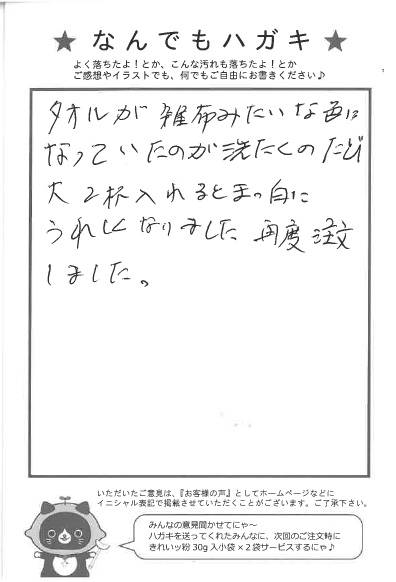 ★ なんでもハガキ ★
よく落ちたよ！とか、こんな汚れも落ちたよ！とか
ご感想やイラストでも、何でもご自由にお書きください♪
タオルが雑布みたいな色に
なっていたのが洗たくのたび
大2杯入れるとまっ白に
うれしくなりました 再度注文
しました。
いただいたご意見は、『お客様の声』としてホームページなどに
イニシャル表記で掲載させていただくことがございます。ご了承下さい。
みんなの意見聞かせてにゃ～
ハガキを送ってくれたみんなに、次回のご注文時に
きれいッ粉30g入小袋×2袋サービスするにゃ♪